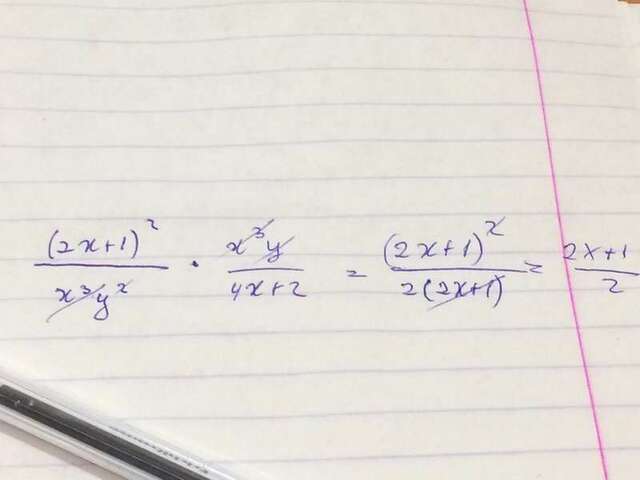 (2x+1)² / x³y² · x³y / 4x+2 = (2x+1)² / 2(2x+1) = 2x+1 / 2